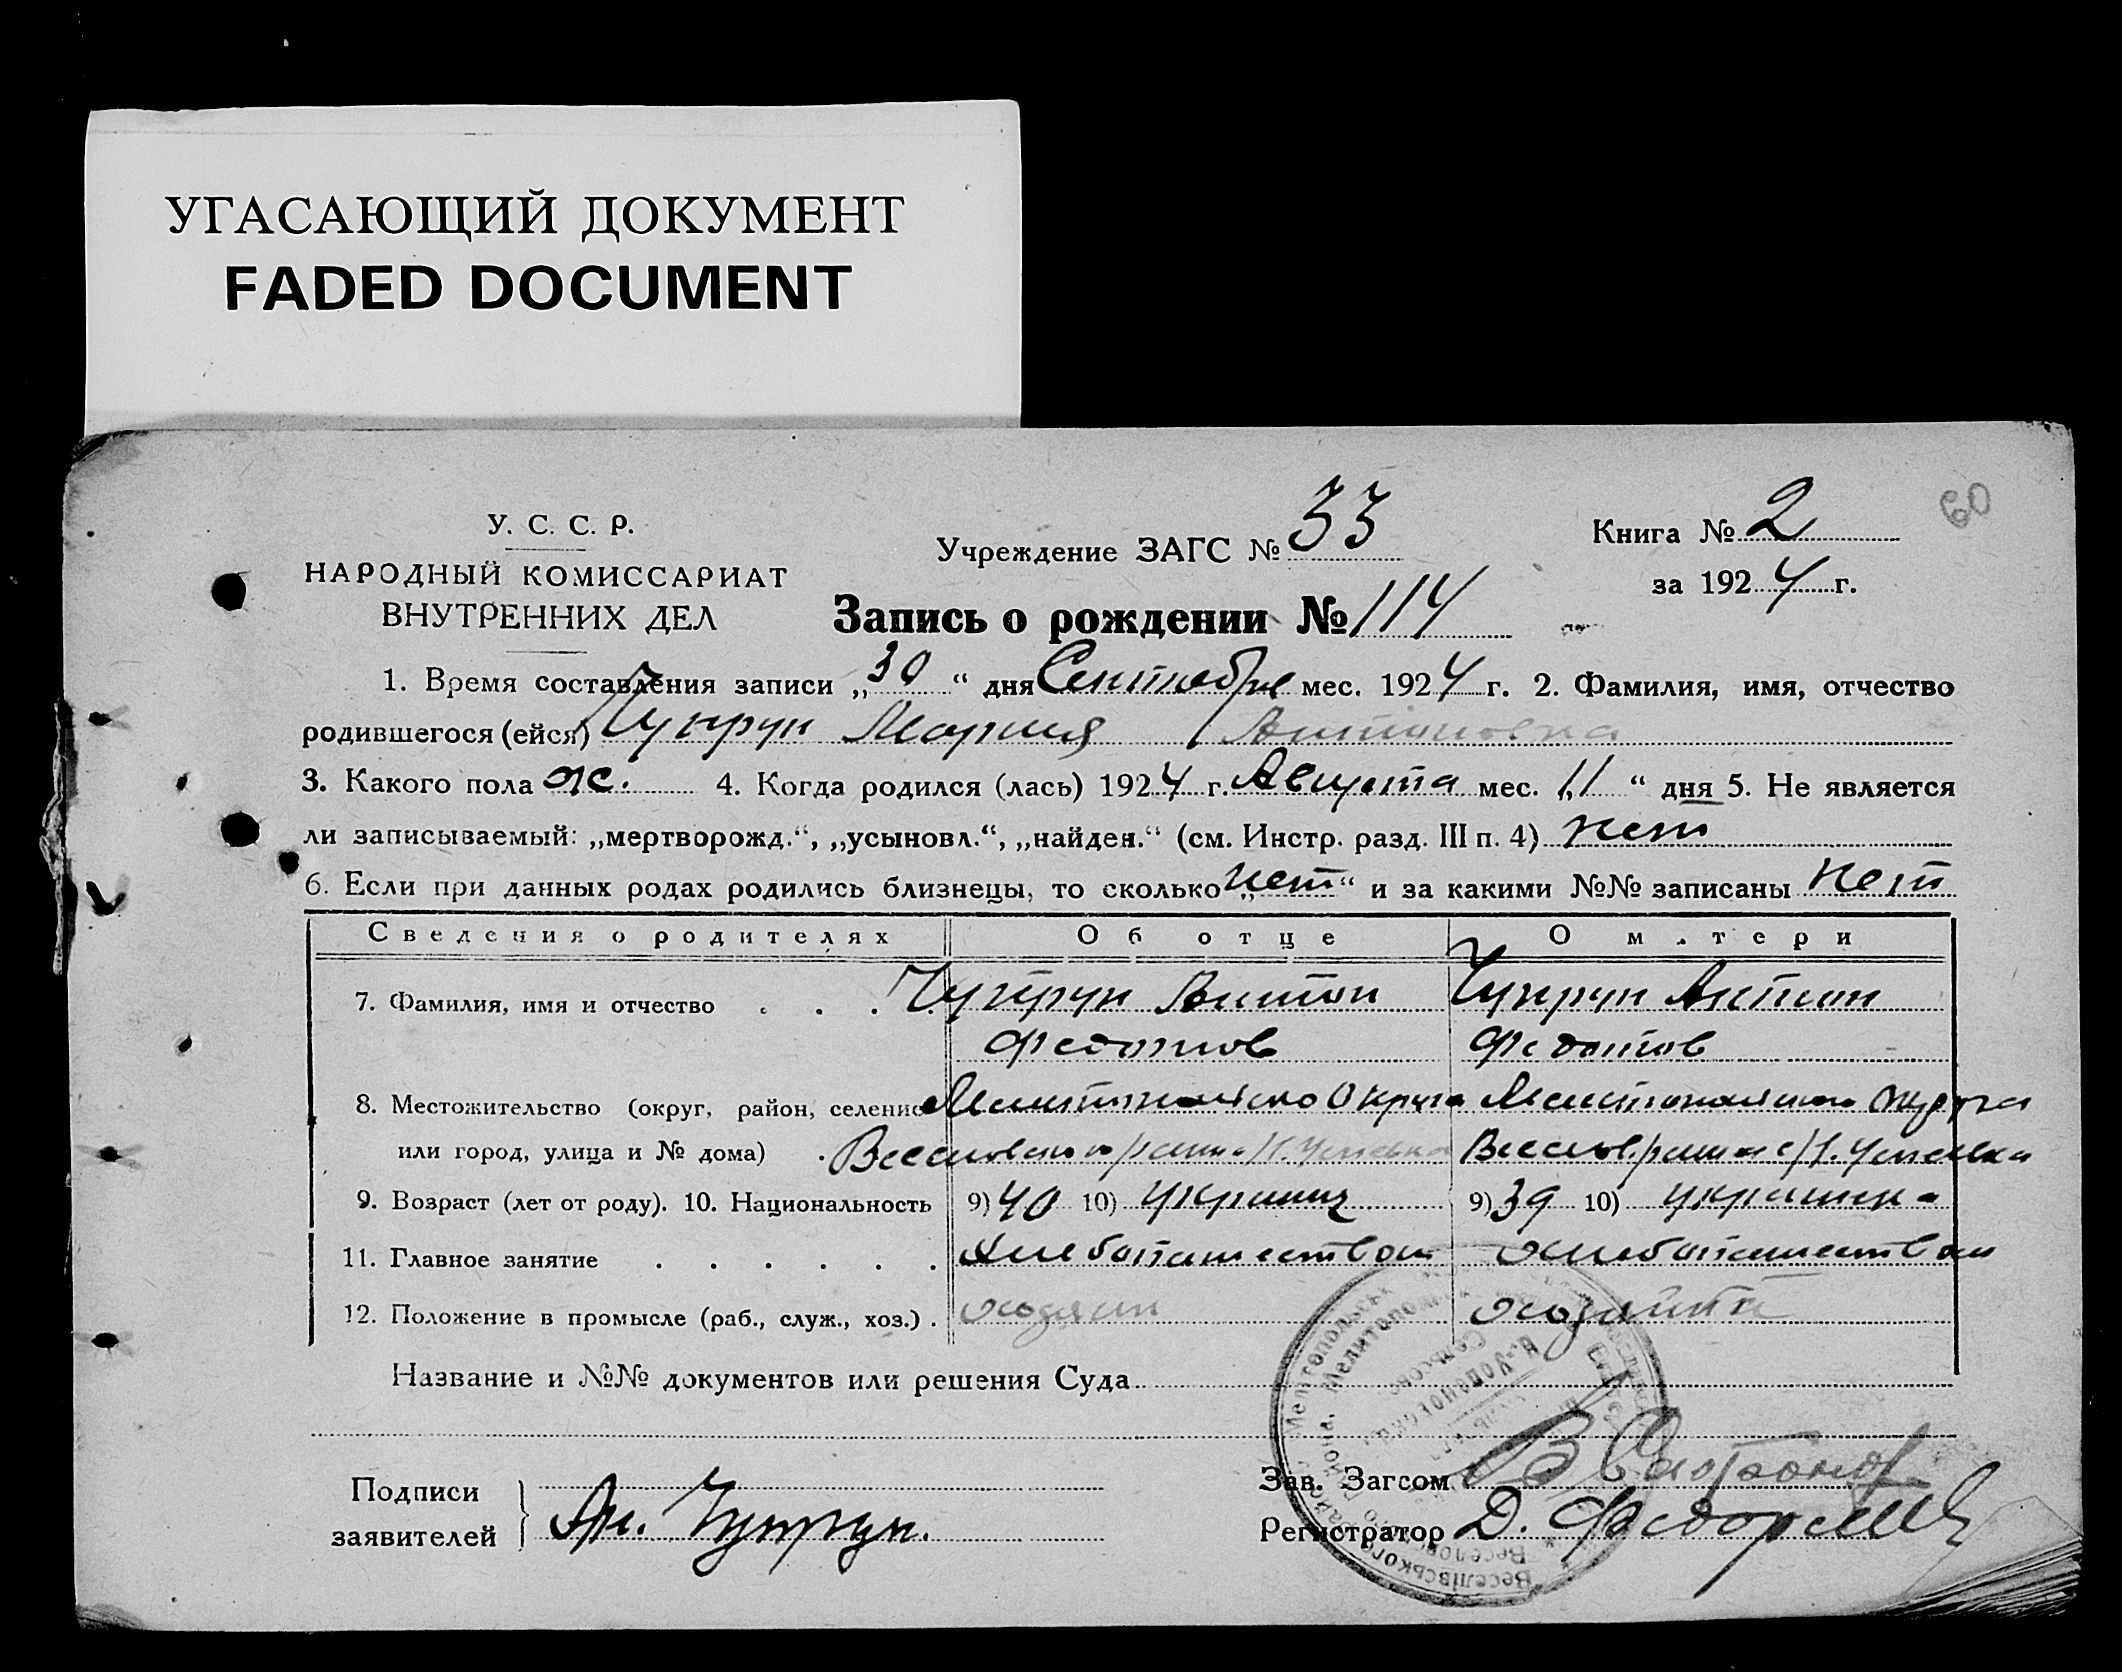 УГАСАЮЩИЙ ДОКУМЕНТ
FADED DOCUMENT
60
У. С. С. Р.
НАРОДНЫЙ КОМИССАРИАТ
ВНУТРЕННИХ ДЕЛ
Учреждение ЗАГС № 33
Книга № 2
за 1924 г.
Запись о рождении № 114
1. Время составления записи „30“ дня Сентября мес. 1924 г. 2. Фамилия, имя, отчество
родившегося (ейся) Чупрун Мария Антоновна
3. Какого пола ж. 4. Когда родился (лась) 1924 г. Августа мес. „11“ дня 5. Не является
ли записываемый: „мертворожд.“, „усыновл.“, „найден.“ (см. Инстр. разд. III п. 4) нет
6. Если при данных родах родились близнецы, то сколько „нет“ и за какими №№ записаны нет
Сведения о родителях Об отце О м.тери
7. Фамилия, имя и отчество . . . . Чупрун Антон Чупрун Антон
Федотов Федотов
8. Местожительство (округ, район, селение Мелитопольского Округа Мелитопольского округа
или город, улица и № дома) . Веселовского района Веселов. района
9. Возраст (лет от роду). 10. Национальность 9) 40 10) Украинц 9) 39 10) украинка
11. Главное занятие . . . . . . Хлебопашеством хлебопашеством
12. Положение в промысле (раб., служ., хоз.) . хозяин
Название и №№ документов или решения Суда
Подписи
заявителей } Ан. Чупрун.
Зав. Загсом В Сафонов
Регистратор Д. Федор